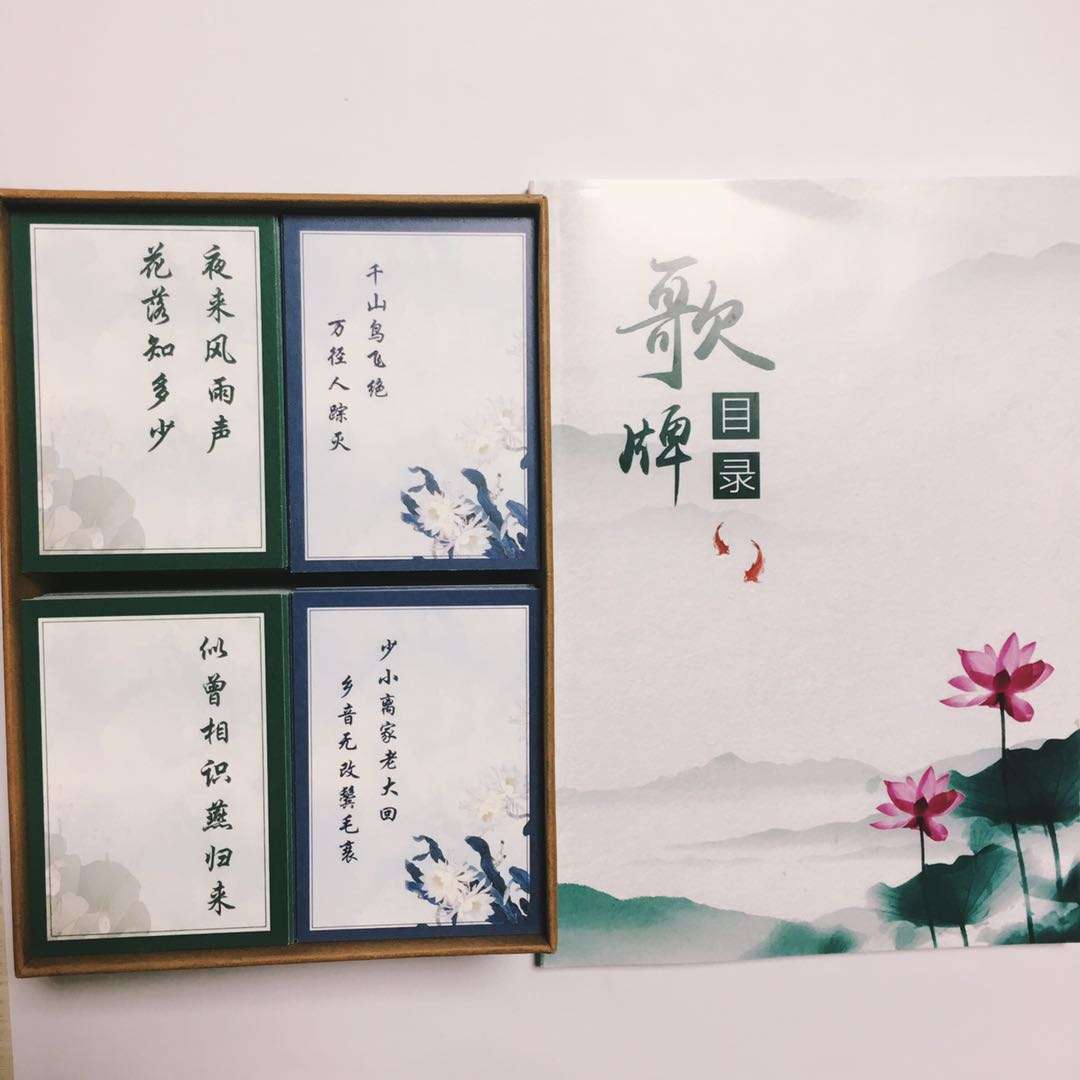 夜来风雨声
花落知多少
千山鸟飞绝
万径人踪灭
似曾相识燕归来
少小离家老大回
乡音无改鬓毛衰
歌牌
目录